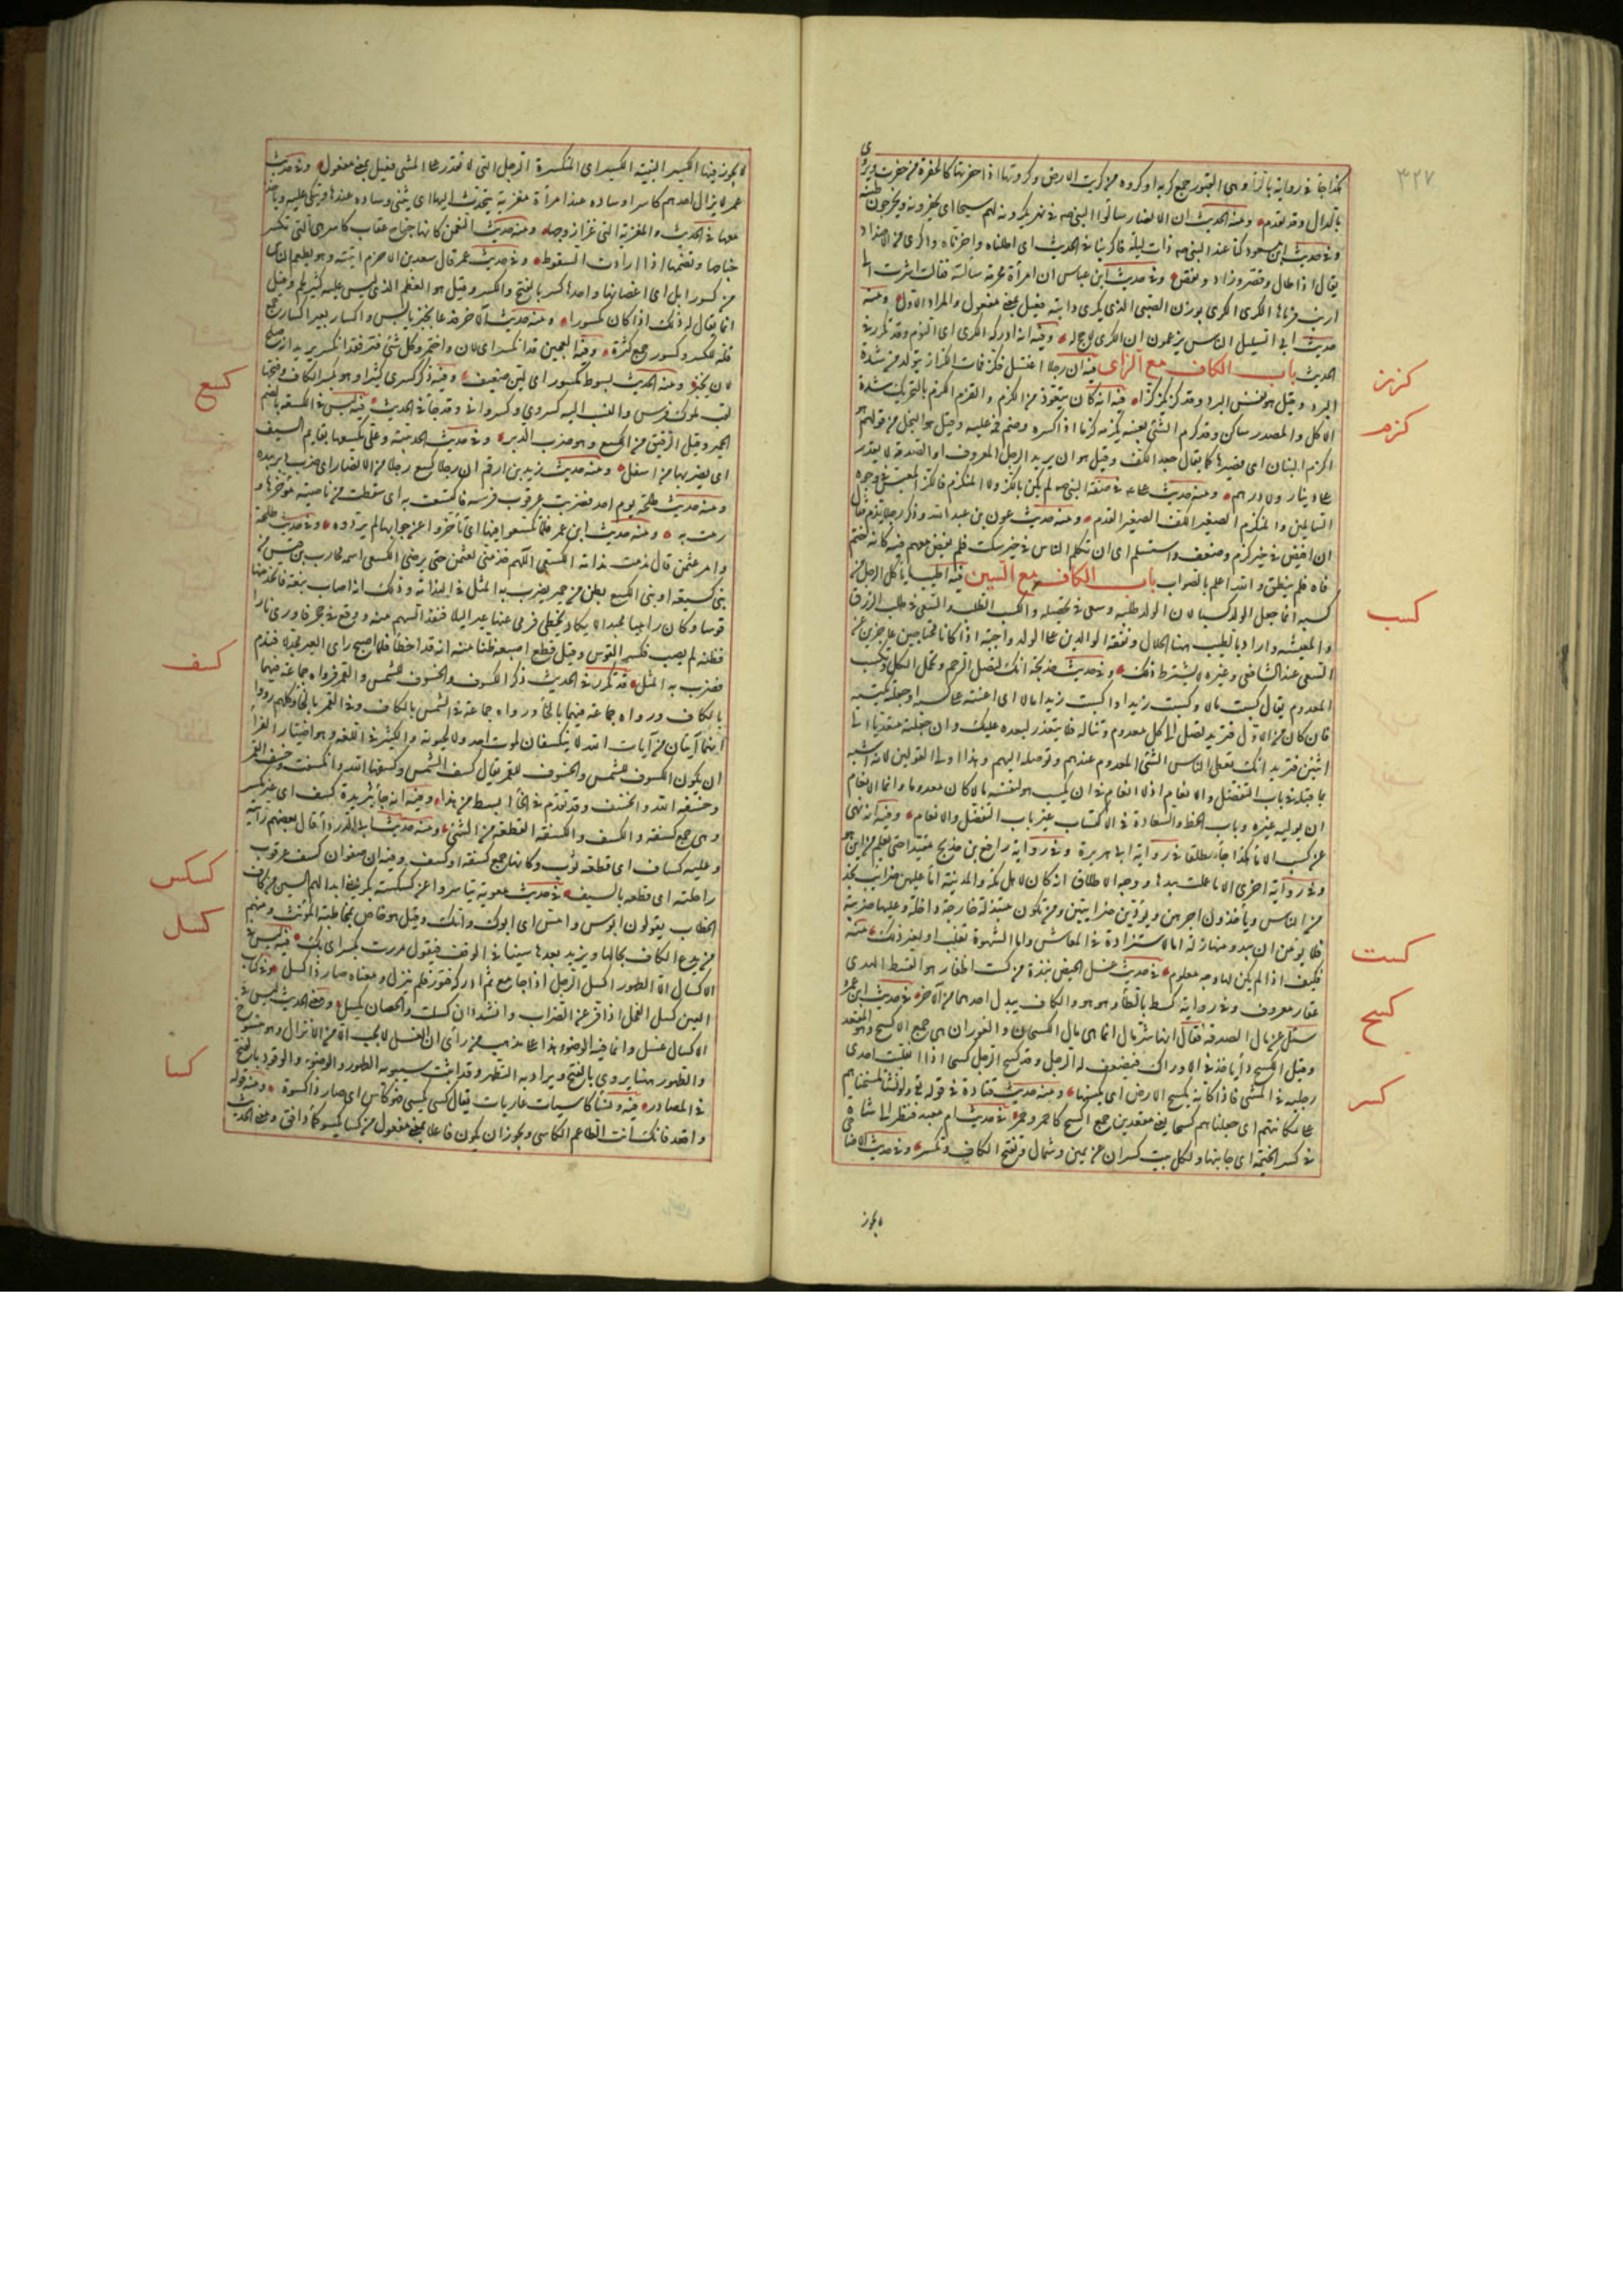 ٣٢٧
هكذا جاء في رواية بالراء وهي القبور جمع كرية او كروة من كريت الارض وكروتها اذا حفرتها كالحفرة من حفرت ويروى
بالدال وقد تقدم ومنه الحديث ان الانصار سألوا النبي صه في نهر يكرونه لهم سيحا اي يحفرونه ويخرجون طينه
وفي حديث ابن مسعود كنا عند النبي صه ذات ليلة فاكرينا في الحديث اي اطلناه واخرناه واكرى من الاضداد
يقال اذا طال وقصر وزاد ونقص وفي حديث ابن عباس ان امرأة محرمة سألته فقالت اشرت الى
ارنب فرماها الكري الكري بوزن الصبي الذي يكري دابته فعيل بمعنى مفعل والمراد الاول ومنه
حديث ابي السليل الناس يزعمون ان الكري لا حج له وفيه انه ادركه الكرى اي النوم وقد تكرر في
الحديث باب الكاف مع الزاي فيه ان رجلا اغتسل فكز فمات الكزاز يتولد من شدة
البرد وقيل هو نفس البرد وقد كز يكز كزا فيه انه كان يتعوذ من الكزم والقزم الكزم بالتحريك شدة
الاكل والمصدر ساكن وقد كزم الشيء بفيه يكزمه كزما اذا كسره وضم فمه عليه وقيل هو البخل من قولهم هو
اكزم البنان اي قصيرها كما يقال جعد الكف وقيل هو ان يريد الرجل المعروف او الصدقة ولا يقدر
على دينار ولا درهم ومنه حديث علي في صفة النبي صه لم يكن بالكز ولا المنكزم فالكز المعبس في وجوه
السائلين والمنكزم الصغير الكف الصغير القدم ومنه حديث عون بن عبد الله وذكر رجلا يذم فقال
ان افيض في خير كزم وضعف واستسلم اي ان تكلم الناس في خير سكت فلم يفض معهم فيه كانه ضم
فاه فلم ينطق والله اعلم بالصواب باب الكاف مع السين فيه اطيب ما يأكل الرجل من
كسبه انما جعل الولد كسبا لان الولد طلبه وسعى في تحصيله والكسب الطلب والسعي في طلب الرزق
والمعيشة واراد بالطيب ههنا الحلال ونفقة الوالدين على الولد واجبة اذا كانا محتاجين عاجزين عن
السعي عند الشافعي وغيره لا يشترط ذلك وفي حديث خديجة انك لتصل الرحم وتحمل الكل وتكسب
المعدوم يقال كسبت مالا وكسبت زيدا واكسبت زيدا مالا اي اعنته على كسبه او جعلته يكسبه
فان كان من الاول فتريد انك تصل الى كل معدوم وتناله فلا يتعذر لبعده عليك وان جعلته متعديا الى
اثنين فتريد انك تعطي الناس الشيء المعدوم عندهم وتوصله اليهم وهذا اولى القولين لانه اشبه
بما قبله في باب التفضل والانعام اذ لا انعام في ان يكسب هو لنفسه مالا كان معدوما وانما الانعام
ان يوليه غيره وباب الحظ والسعادة في الاكتساب غير باب التفضل والانعام وفيه انه نهى
عن كسب الاماء هكذا جاء مطلقا في رواية ابي هريرة وفي رواية رافع بن خديج مقيدا حتى يعلم من اين هو
وفي رواية اخرى الا ما عملت بيدها ووجه الاطلاق انه كان لاهل مكة والمدينة اماء عليهن ضرائب يخدمن
من الناس ويأخذن اجرهن ويؤدين ضرائبهن ومن تكون متبذلة خارجة داخلة وعليها ضريبة
فلا يؤمن ان يبدو منها زلة اما للاستزادة في المعاش واما لشهوة تغلب او لغير ذلك
فكيف اذا لم يكن لها وجه معلوم في حديث غسل الحيض نبذة من كست اظفار هو القسط الهندي
عقار معروف وفي رواية كسط بالطاء وهو هو والكاف يبدل احدهما من الآخر في حديث ابن عمر
سئل عن مال الصدقة فقال انها شر مال انما هي مال الكسحان والعوران هي جمع الاكسح وهو المقعد
وقيل الكسح داء يأخذ في الاوراك فيضعف له الرجل وقد كسح الرجل كسحا اذا ثقلت احدى
رجليه في المشي فاذا كانه يكسح الارض اي يكنسها ومنه حديث قتادة في قوله تع ولو نشاء لمسخناهم
على مكانتهم اي جعلناهم كسحا يعني مقعدين جمع اكسح كاحمر وحمر في حديث ام معبد فنظر الى شاة
في كسر الخيمة اي جانبها ولكل بيت كسران عن يمين وشمال وتفتح الكاف وتكسر وفي حديث الاضاحي
لا يجوز
كزز
كزم
كسب
كست
كسح
كسر
لا يجوز فيها الكسير البينة الكسر اي المنكسرة الرجل التي لا تقدر على المشي فعيل بمعنى مفعول وفي حديث
عمر لا يزال احدهم كاسرا وساده عند امرأة مغزية يتحدث اليها اي يثني وساده عندها ويتكئ عليه ويأخذ
معها في الحديث والمغزية التي غزا زوجها ومنه حديث النعمن كانها جناح عقاب كاسر هي التي تكسر
جناحها وتضمهما اذا ارادت السقوط وفي حديث عمر قال سعد بن الاخرم اتيته وهو يطعم الناس
من كسور ابل اي اعضائها واحدها كسر بالفتح والكسر وقيل هو العظم الذي ليس عليه كثير لحم وقيل
انما يقال له ذلك اذا كان مكسورا ومنه حديثه الآخر فدعا بخبز يابس واكسار بعير اكسار جمع
قلة للكسر وكسور جمع كثرة وفيه العجين قد انكسر اي لان واختمر وكل شيء فتر فقد انكسر يريد انه صلح
لان يخبز ومنه الحديث بسوط مكسور اي لين ضعيف وفيه ذكر كسرى كثيرا وهو بكسر الكاف وفتحها
لقب ملوك فرس والنسب اليه كسروي وكسرواني وقد جاء في الحديث فيه ليس في الكسعة بالضم
الحمير وقيل الرقيق من الكسع وهو ضرب الدبر وفي حديث الحديبية وعلي يكسعها بقائم السيف
اي يضربها من اسفل ومنه حديث زيد بن ارقم ان رجلا كسع رجلا من الانصار اي ضرب دبره بيده
ومنه حديث طلحة يوم احد فضربت عرقوب فرسه فاكتسعت به اي سقطت من ناحية مؤخرها و
رمت به ومنه حديث ابن عمر فلما تكسعوا فيها اي تأخروا عن جوابها ولم يردوه وفي حديث طلحة
وامر عثمن قال ندمت ندامة الكسعي اللهم خذ مني لعثمن حتى يرضى الكسعي اسمه محارب بن قيس من
بني كسيعة او بني الكسع بطن من حمير يضرب به المثل في الندامة وذلك انه اصاب نبعة فاتخذ منها
قوسا وكان راميا مجيدا لا يكاد يخطئ فرمى عنها عيرا ليلا فنفذ السهم منه ووقع في حجر فاورى نارا
فظنه لم يصب فكسر القوس وقيل قطع اصبعه ظنا منه انه قد اخطأ فلما اصبح رأى العير مجدلا فندم
فضرب به المثل قد تكرر في الحديث ذكر الكسوف والخسوف للشمس والقمر فرواه جماعة فيهما
بالكاف ورواه جماعة فيهما بالخاء ورواه جماعة في الشمس بالكاف وفي القمر بالخاء وكلهم رووا
انهما آيتان من آيات الله لا ينكسفان لموت احد ولا لحيوته والكثير في اللغة وهو اختيار الفراء
ان يكون الكسوف للشمس والخسوف للقمر يقال كسف الشمس وكسفها الله وانكسفت وخسف القمر
وخسفه الله وانخسف وقد تقدم في الخاء ابسط من هذا وفيه انه جاء بثريدة كسف اي خبز مكسر
وهي جمع كسفة والكسف والكسفة القطعة من الشيء ومنه حديث ابي الدرداء قال بعضهم رأيته
وعليه كساف اي قطعة ثوب وكانها جمع كسفة او كسف وفيه ان صفوان كسف عرقوب
راحلته اي قطعه بالسيف في حديث معوية تياسروا عن كسكسة بكر يعني ابدالهم السين من كاف
الخطاب يقولون ابوس وامس اي ابوك وامك وقيل هو خاص بمخاطبة المؤنث ومنهم
من يدع الكاف بحالها ويزيد بعدها سينا في الوقف فيقول مررت بكس اي بك فيه ليس في
الاكسال الا الطهور اكسل الرجل اذا جامع ثم ادركه فتور فلم ينزل ومعناه صار ذا كسل وفي كتاب
العين كسل الفحل اذا فتر عن الضراب وانشد أان كسلت والحصان يكسل ومعنى الحديث ليس في
الاكسال غسل وانما فيه الوضوء هذا على مذهب من رأى ان الغسل لا يجب الا من الانزال وهو منسوخ
والطهور ههنا يروى بالفتح ويراد به التطهر وقد اثبت سيبويه الطهور والوضوء والوقود بالفتح
في المصادر فيه ونساء كاسيات عاريات يقال كسي يكسى فهو كاس اي صار ذا كسوة ومنه قوله
واقعد فانك انت الطاعم الكاسي ويجوز ان يكون فاعلا بمعنى مفعول من كسا يكسو كماء دافق ومعنى الحديث
كسع
كسف
كسكس
كسل
كسا